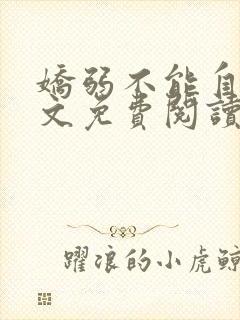 嬌弱不能自
文免費閱讀
躍浪的小虎鯨